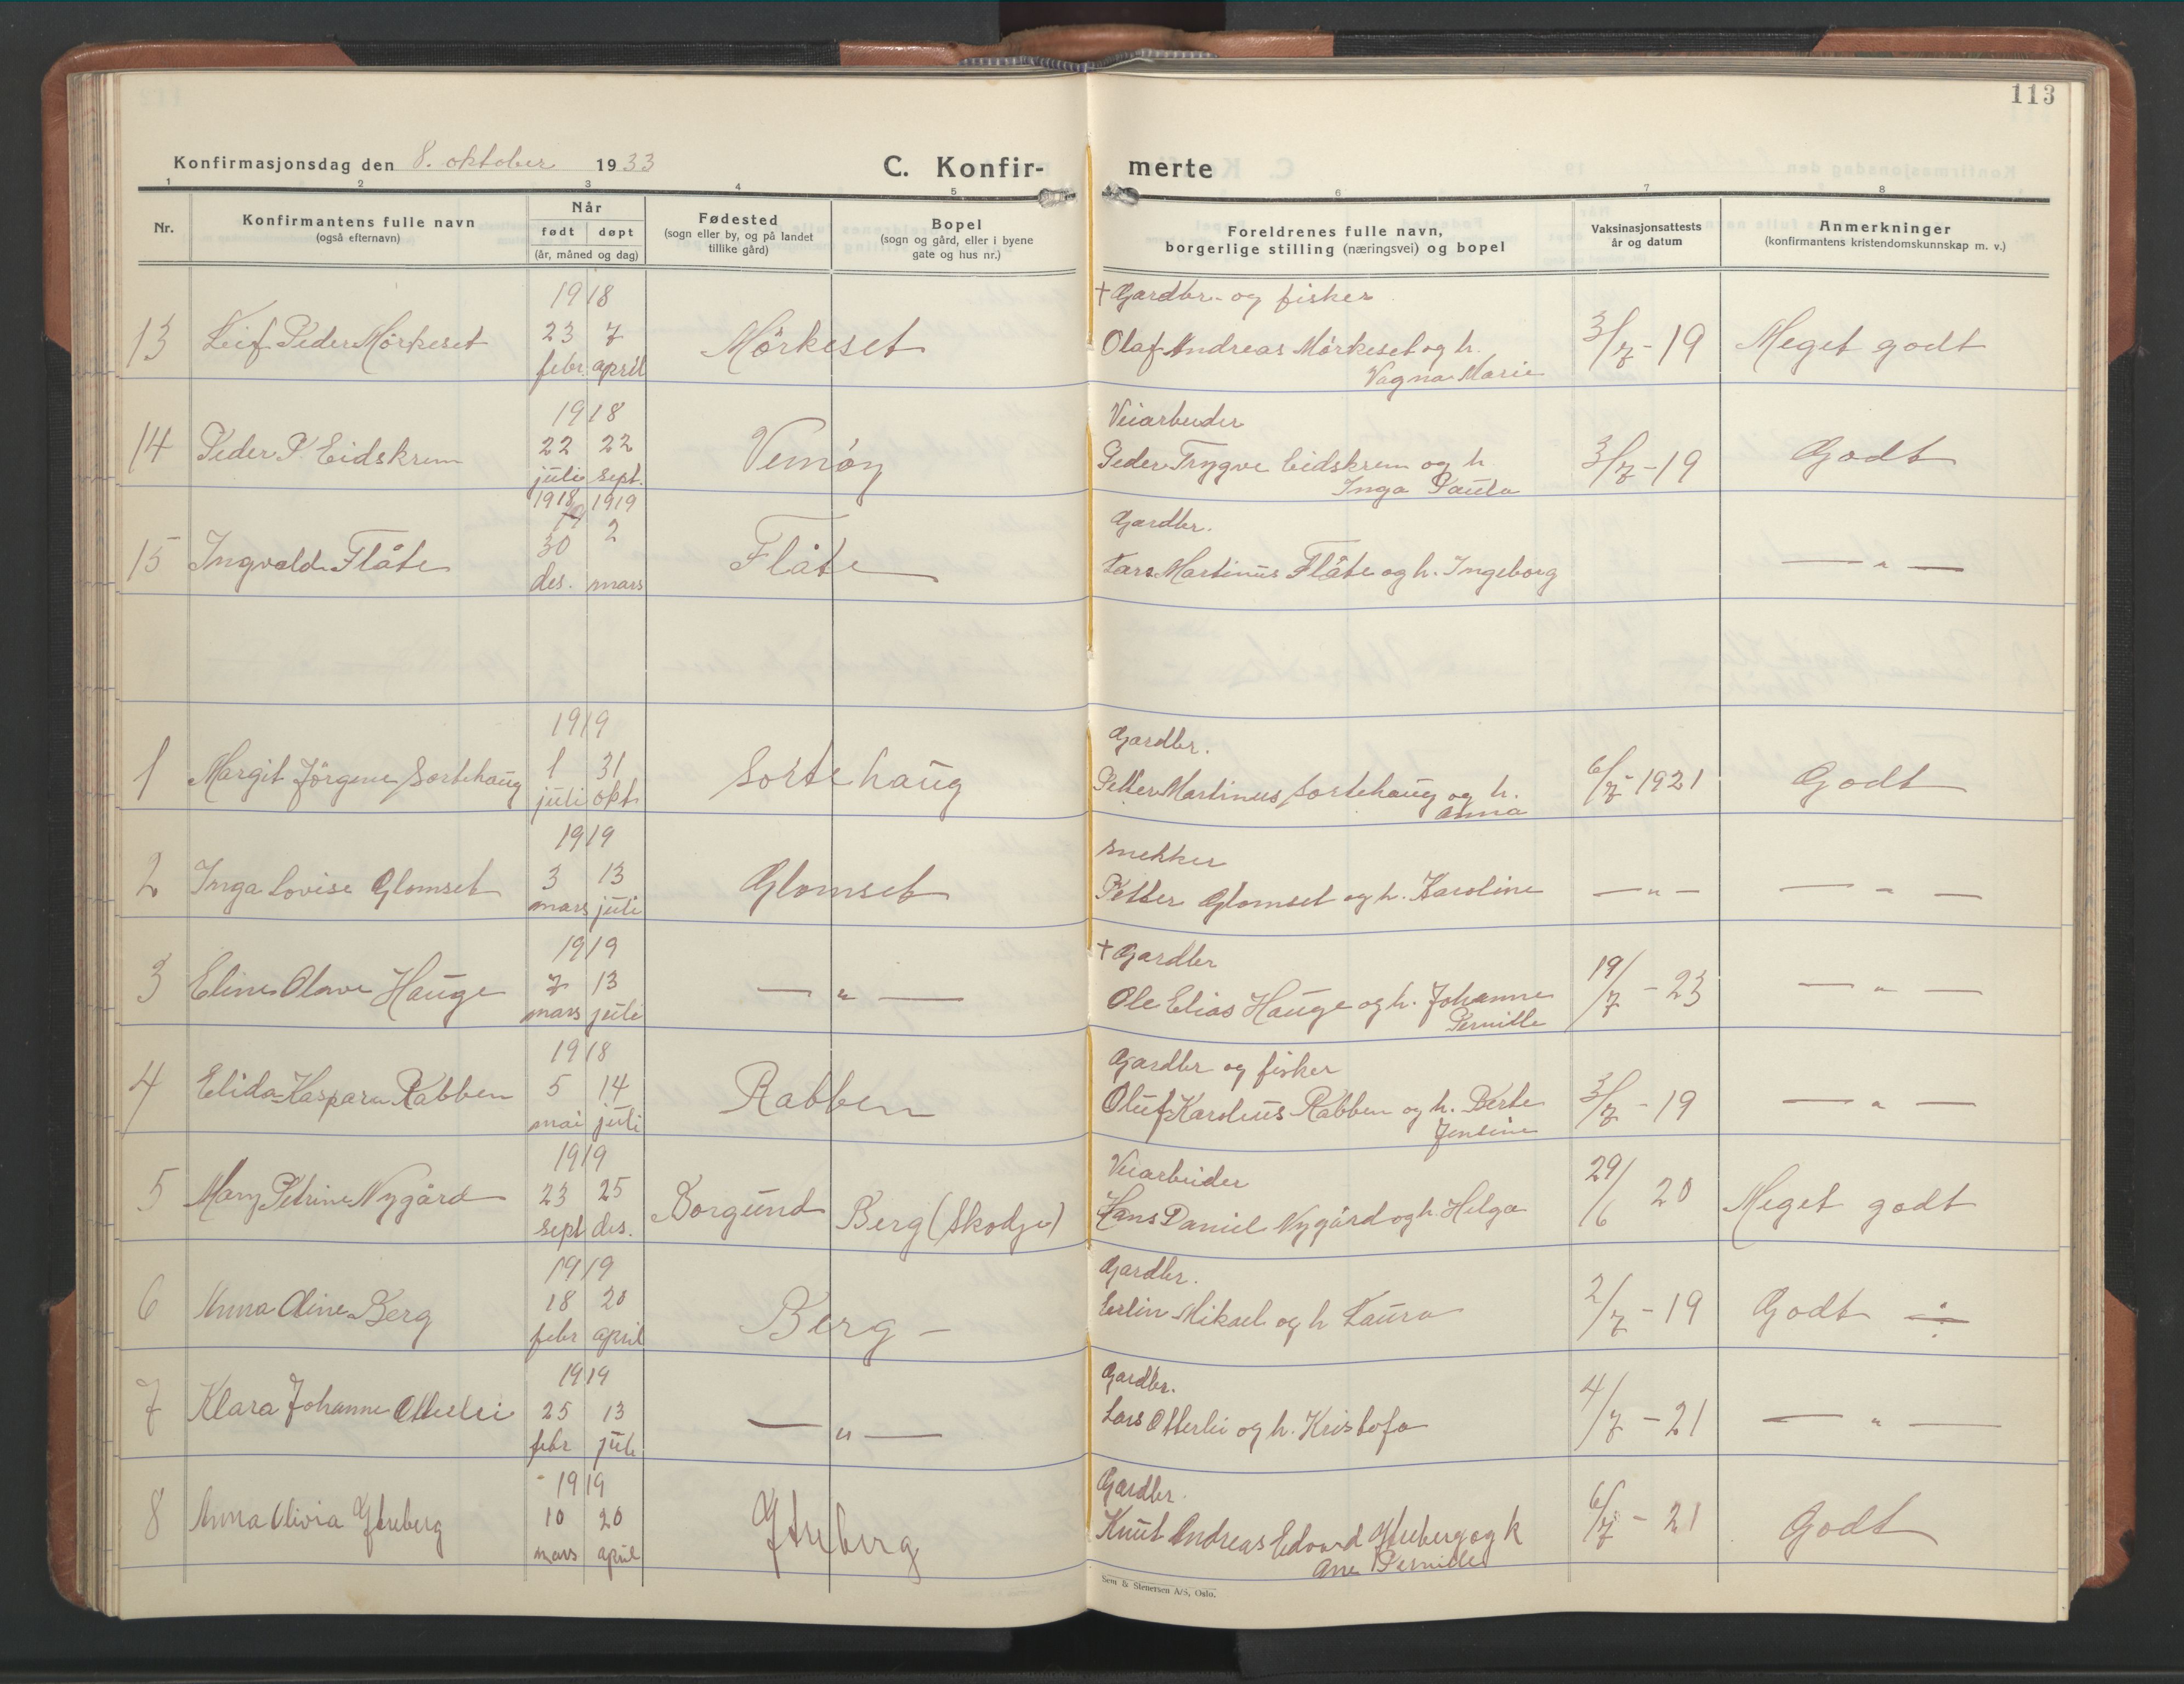 113
Konfirmasjonsdag den 8. oktober 1933
C. Konfir-
merte
1 2 3 4 5 6 7 8
Nr.
Konfirmantens fulle navn
(også efternavn)
Når
født døpt
(år, måned og dag)
Fødested
(sogn eller by, og på landet
tillike gård)
Bopel
(sogn og gård, eller i byene
gate og hus nr.)
Foreldrenes fulle navn,
borgerlige stilling (næringsvei) og bopel
Vaksinasjonsattests
år og datum
Anmerkninger
(konfirmantens kristendomskunnskap m. v.)
1918
† Gardbr. og fisker
13 Leif Peder Mörkeset 23 7 Mörkeset Olaf Andreas Mörkeset og h. 3/7-19 Meget godt
febr. april Vagna Marie
1918
Veiarbeider
14 Peder P. Eidskrem 22 22 Vemøy Peder Trygve Eidskrem og h 3/7-19 Godt
juli sept. Inga Paula
1918 1919
19
Gardbr.
15 Ingvald Flåte 30 2 Flåte Lars Martinus Flåte og h. Ingeborg — " —
des. mars
1919
Gardbr.
1 Margit Jörgine Sortehaug 1 31 Sortehaug Petter Martinus Sortehaug og h. 6/7-1921 Godt
juli okt. Anna
1919
Snekker
2 Inga Lovise Glomset 3 13 Glomset Petter Glomset og h. Karoline — " — — " —
mars juli
1919
† Gardbr
3 Eline Olave Hauge 7 13 — " — Ole Elias Hauge og h. Johanne 19/7-23 — " —
mars juli Pernille
1918
Gardbr og fisker
4 Elida Kaspara Rabben 5 14 Rabben Oluf Karolius Rabben og h. Berte 3/7-19 — " —
mai juli Jensine
1919
Veiarbeider
5 Mary Petrine Nygård 23 25 Borgund Berg (Skodje) Hans Daniel Nygård og h. Helga 29/6 20 Meget godt
sept des.
1919
Gardbr.
6 Anna Oline Berg 18 20 Berg - Erlin Mikael og h Laura 2/7-19 Godt ÷
febr april
1919
Gardbr.
7 Klara Johanne Otterlei 25 13 — " — Lars Otterlei og h. Kristofa 4/7-21 — " —
febr juli
1919
Gardbr.
8 Anna Olivia Ytreberg 10 20 Ytreberg Knut Andreas Edvard Ytreberg og k 6/7-21 Godt
mars april Ane Pernille
Sem & Stenersen A/S, Oslo.